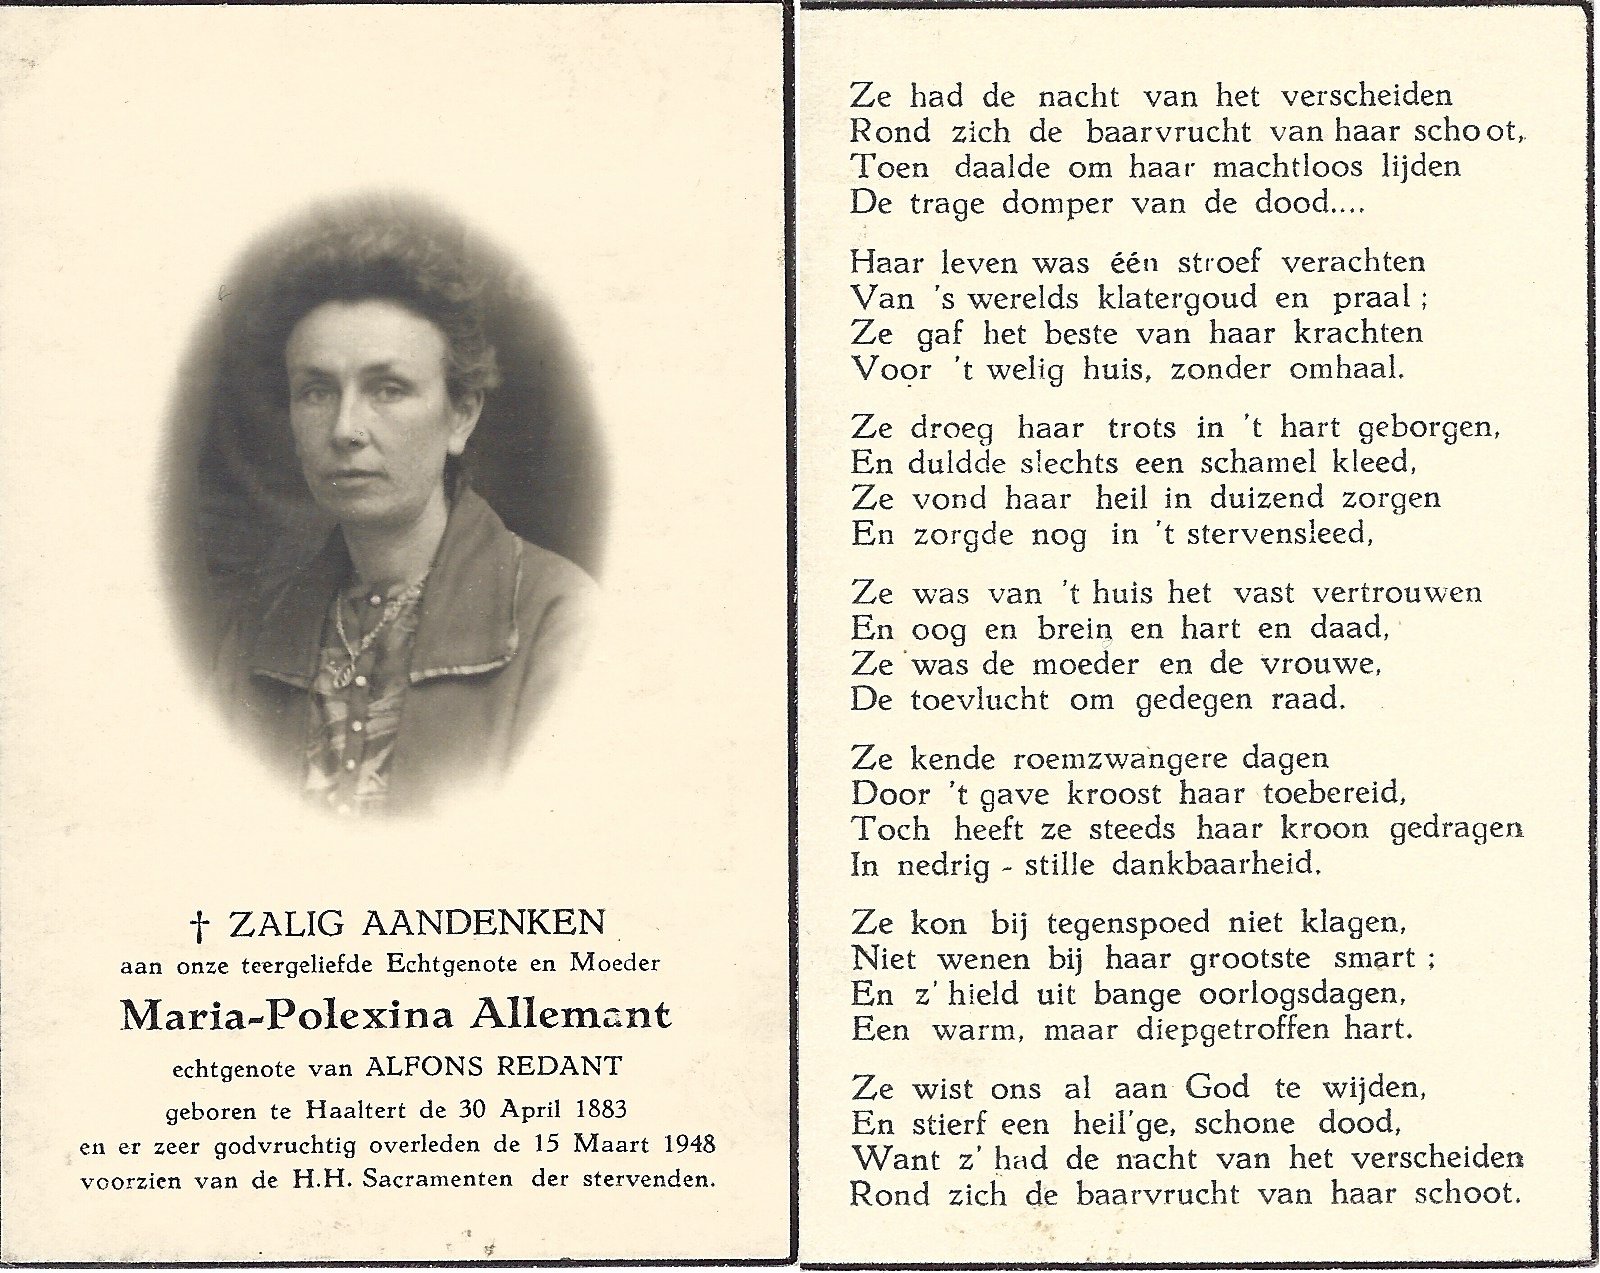 † ZALIG AANDENKEN
aan onze teergeliefde Echtgenote en Moeder
Maria-Polexina Allemant
echtgenote van ALFONS REDANT
geboren te Haaltert de 30 April 1883
en er zeer godvruchtig overleden de 15 Maart 1948
voorzien van de H.H. Sacramenten der stervenden.
Ze had de nacht van het verscheiden
Rond zich de baarvrucht van haar schoot,
Toen daalde om haar machtloos lijden
De trage domper van de dood....
Haar leven was één stroef verachten
Van 's werelds klatergoud en praal ;
Ze gaf het beste van haar krachten
Voor 't welig huis, zonder omhaal.
Ze droeg haar trots in 't hart geborgen,
En duldde slechts een schamel kleed,
Ze vond haar heil in duizend zorgen
En zorgde nog in 't stervensleed,
Ze was van 't huis het vast vertrouwen
En oog en brein en hart en daad,
Ze was de moeder en de vrouwe,
De toevlucht om gedegen raad.
Ze kende roemzwangere dagen
Door 't gave kroost haar toebereid,
Toch heeft ze steeds haar kroon gedragen
In nedrig - stille dankbaarheid.
Ze kon bij tegenspoed niet klagen,
Niet wenen bij haar grootste smart ;
En z' hield uit bange oorlogsdagen,
Een warm, maar diepgetroffen hart.
Ze wist ons al aan God te wijden,
En stierf een heil'ge, schone dood,
Want z' had de nacht van het verscheiden
Rond zich de baarvrucht van haar schoot.